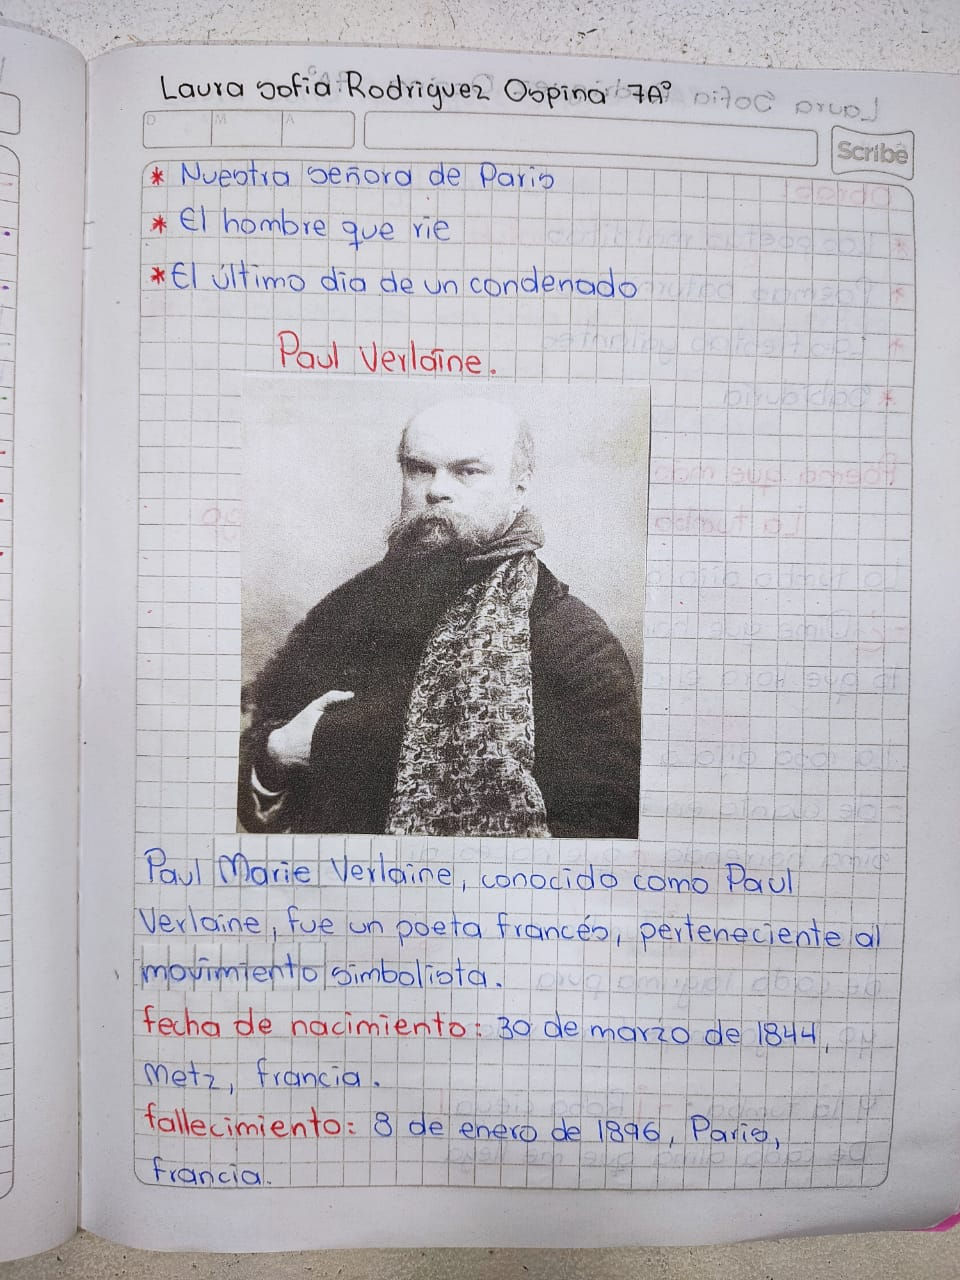 Laura Sofia Rodriguez Ospina 7A°
D M A
Scribe
* Nuestra Señora de Paris
* El hombre que rie
* El último dia de un condenado
Paul Verlaine.
Paul Marie Verlaine, conocido como Paul
Verlaine, fue un poeta francés, perteneciente al
movimiento simbolista.
fecha de nacimiento: 30 de marzo de 1844,
Metz, francia.
fallecimiento: 8 de enero de 1896, Paris,
francia.